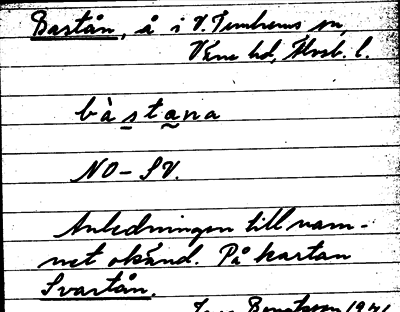 Bastån, å i V. Tunhems sn,
Väne hd, Älvsb. l.
bàstana
NO – SV.
Anledningen till nam-
net okänd. På kartan
Svartån.
Bengtsson 1941